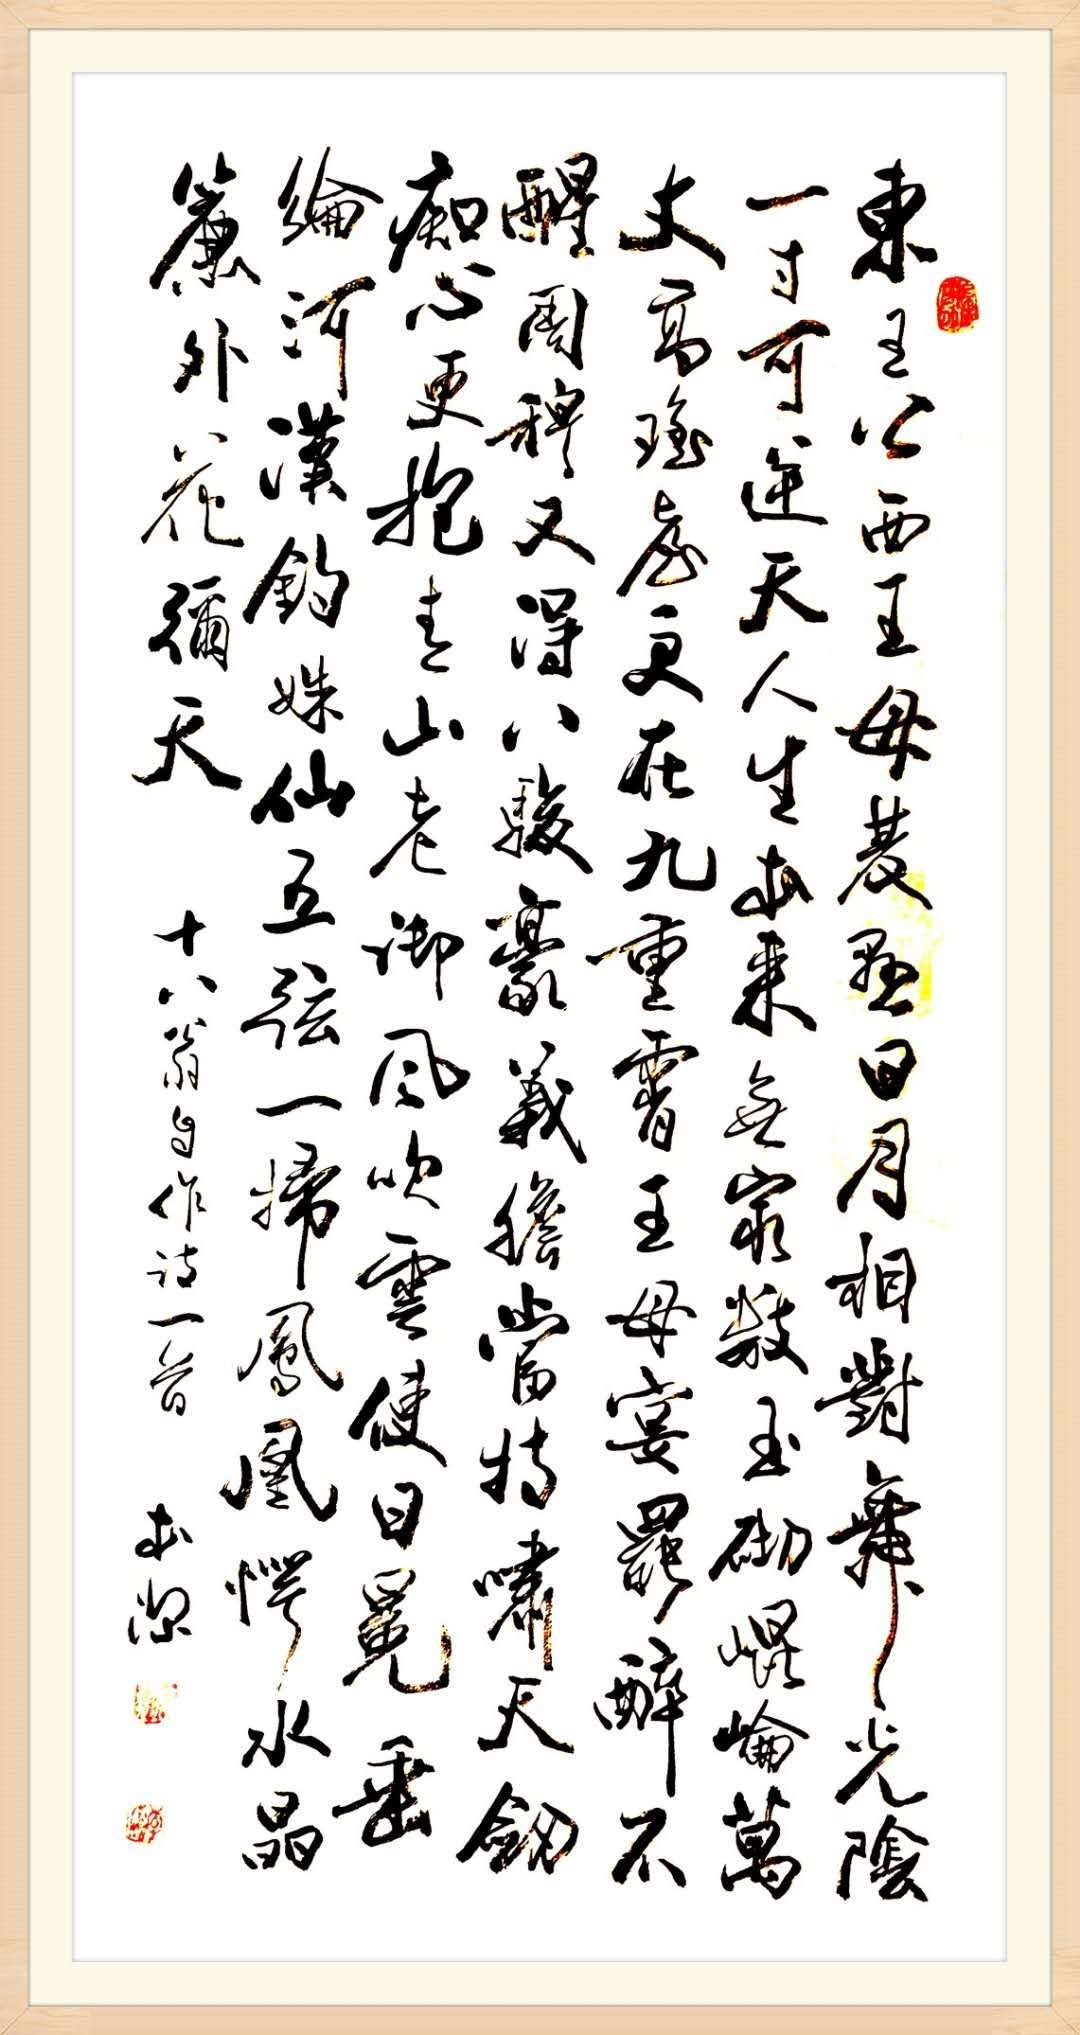 東王公西王母點日月相對舞光陰
一寸可逆天人生本来無數玉砌崐崙萬
丈高瑤臺更在九重霄王母宴罷醉不
醒周穆又得八駿豪義膽當持嘯天劍
痴心更抱青山老御風吹雲使日冕垂
綸河漢釣姝仙五弦一掃鳳凰愕水晶
簾外花彌天
十八翁自作詩一首